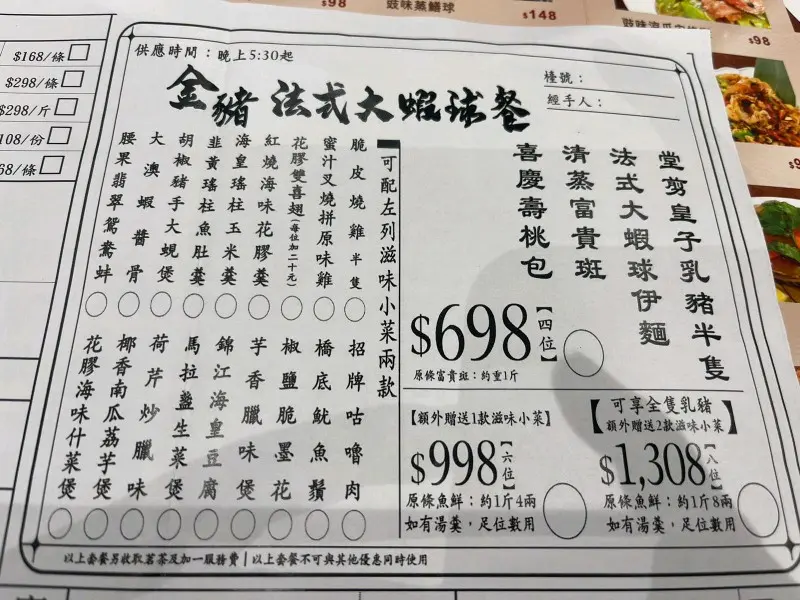 $98
豉味蒸鱔球
$148
$98
$168/條
$298/條
$298/斤
108/份
68/條
供應時間：晚上5:30起
檯號：
經手人：
金豬法式大蝦球餐
堂剪皇子乳豬半隻
法式大蝦球伊麵
清蒸富貴斑
喜慶壽桃包
$698【四位】
原條富貴斑：約重1斤
【額外贈送1款滋味小菜】
$998【六位】
原條魚鮮：約1斤4兩
如有湯羹，足位數用
【可享全隻乳豬
額外贈送2款滋味小菜】
$1,308【八位】
原條魚鮮：約1斤8兩
如有湯羹，足位數用
可配左列滋味小菜兩款
脆皮燒雞半隻
蜜汁叉燒拼原味雞
花膠雙喜翅(每位加二十元)
紅燒海味花膠羹
海皇瑤柱玉米羹
韭黃瑤柱魚肚羹
胡椒豬手大蜆煲
大澳蝦醬骨
腰果翡翠鴛鴦蚌
招牌咕嚕肉
橋底魷魚鬚
椒鹽脆墨花
芋香臘味煲
錦江海皇豆腐
馬拉盞生菜煲
荷芹炒臘味
椰香南瓜荔芋煲
花膠海味什菜煲
以上套餐另收取茗茶及加一服務費 | 以上套餐不可與其他優惠同時使用